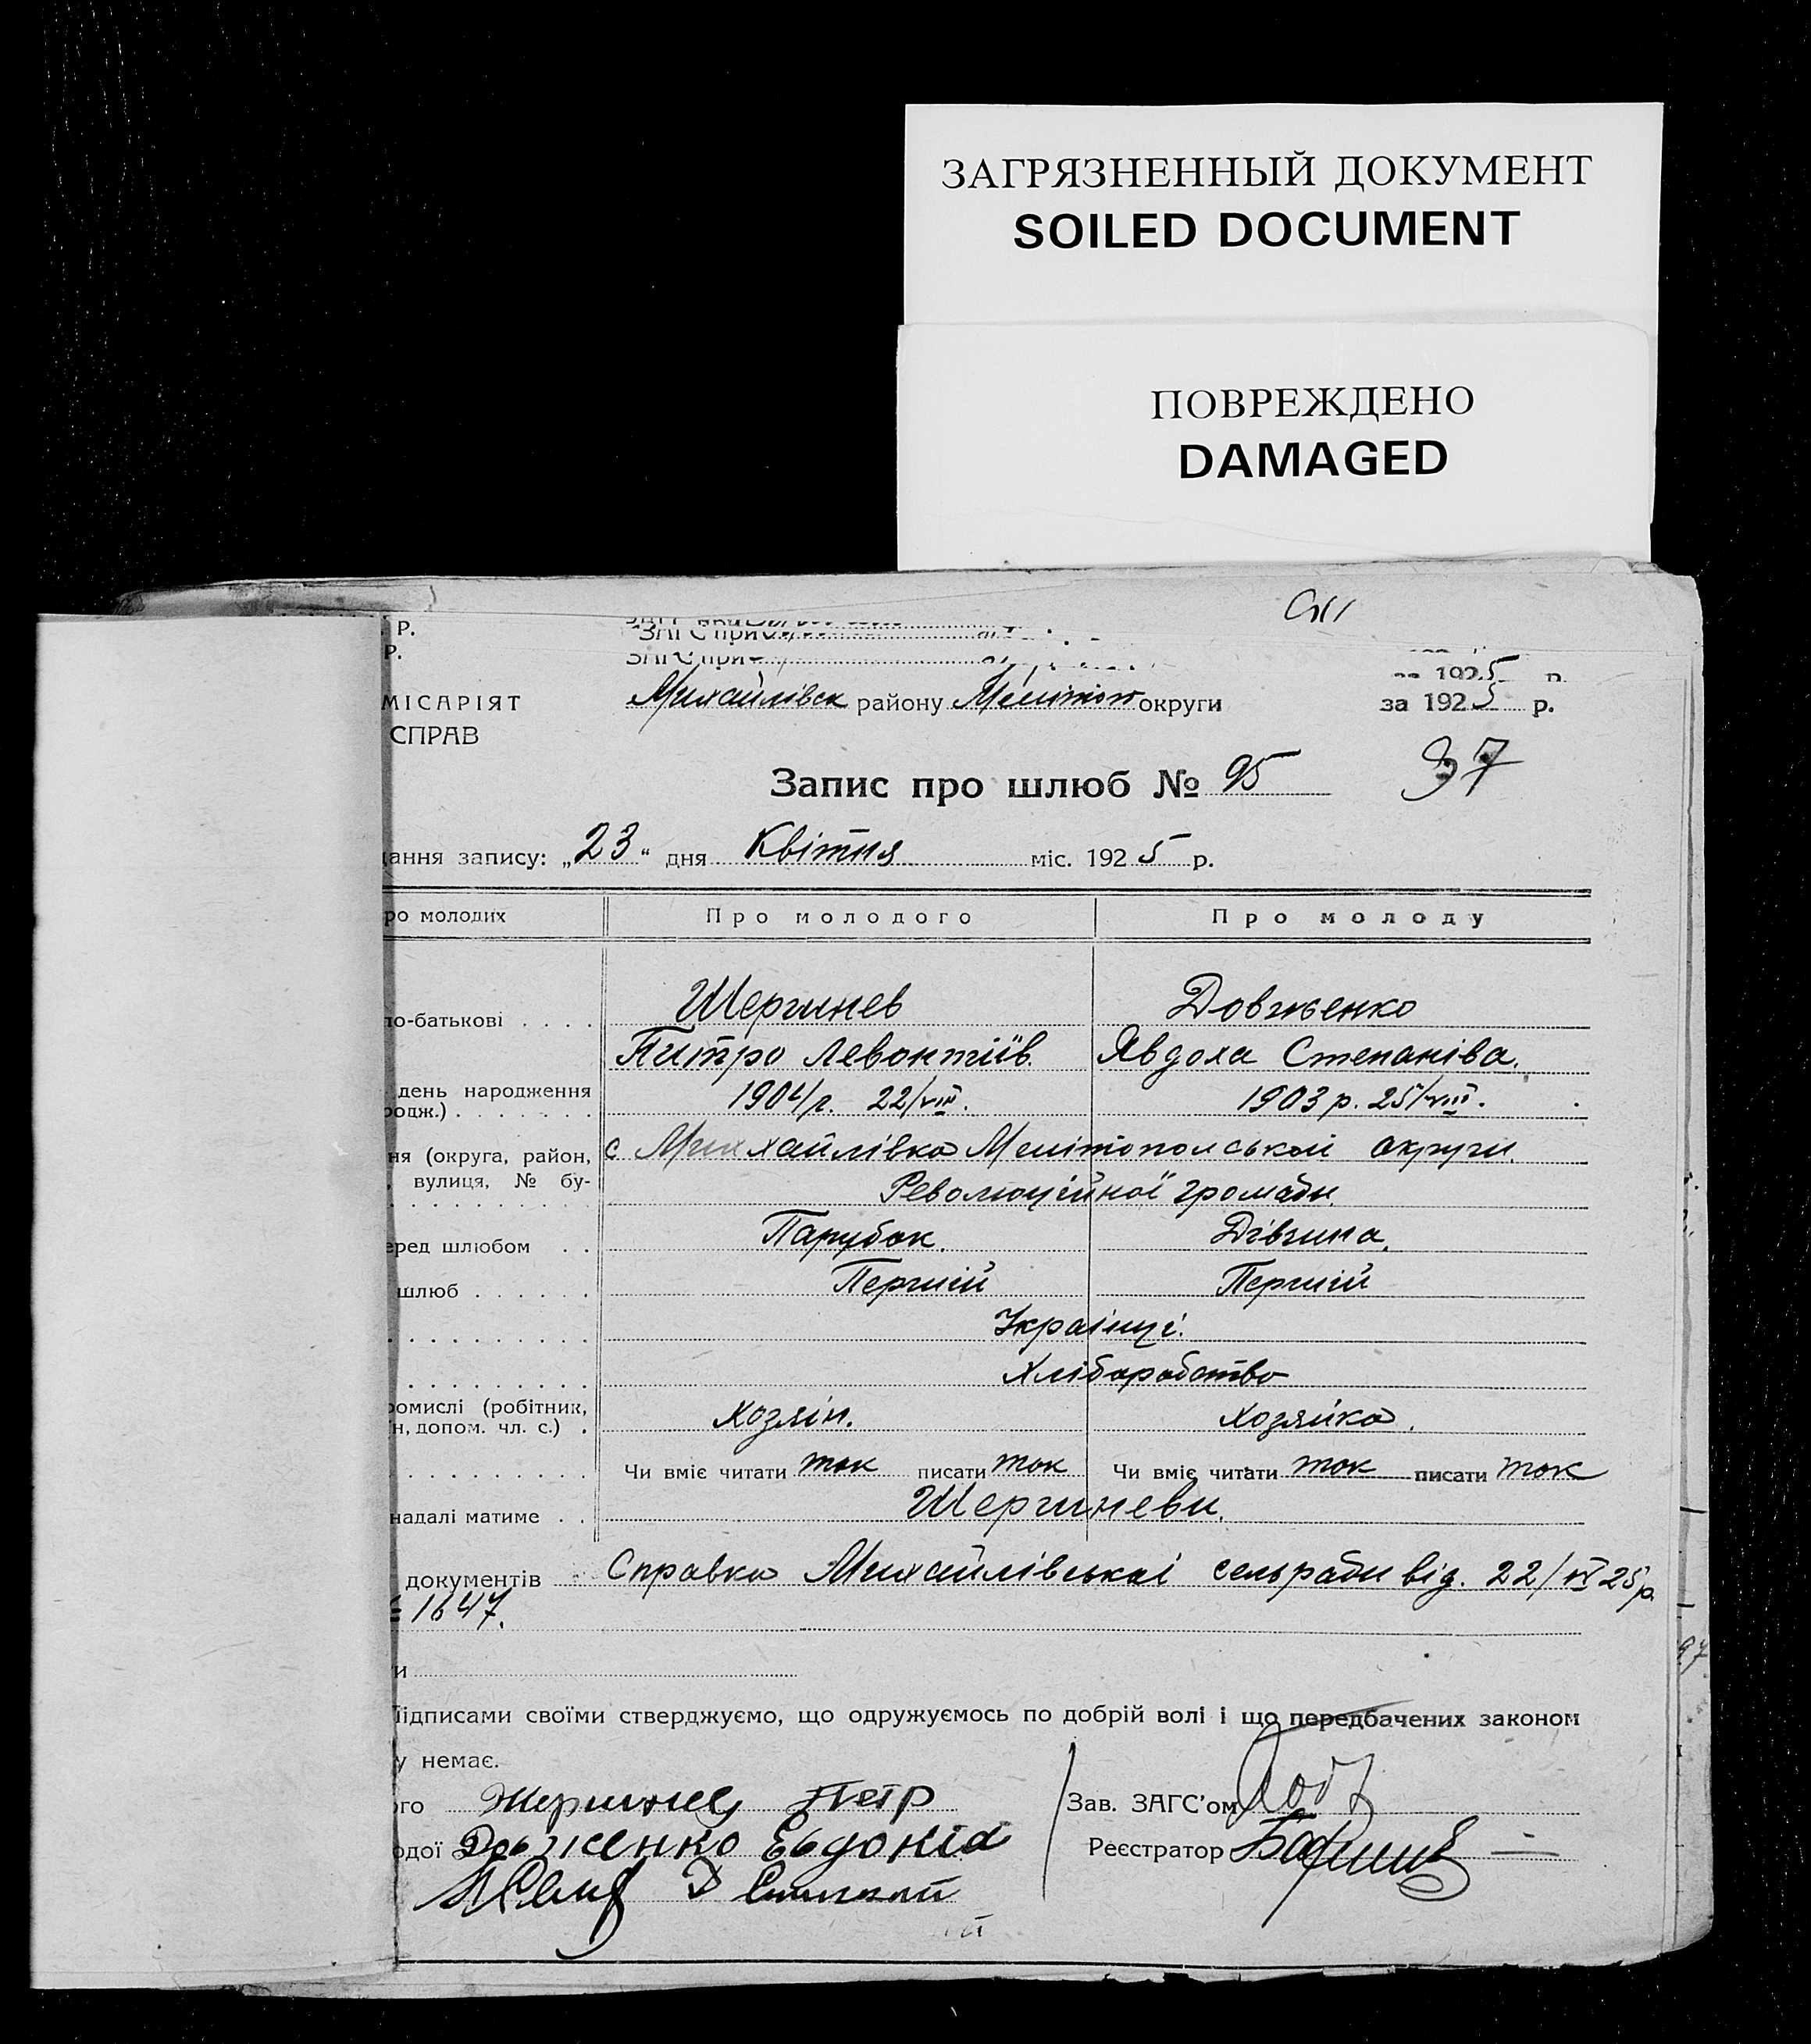 ЗАГРЯЗНЕННЫЙ ДОКУМЕНТ
SOILED DOCUMENT
ПОВРЕЖДЕНО
DAMAGED
Р.
ЗАГС при
Р.
ЗАГС при
1925 р.
МІСАРІЯТ Михайлівск району Мелітоп округи за 1925 р.
СПРАВ
Запис про шлюб № 95 37
дання запису: „23“ дня Квітня міс. 1925 р.
ро молодих Про молодого Про молоду
Шершнев Довженко
по-батькові . . . .
Питро Левонтіїв. Явдоха Степаніва.
день народження 1904 г. 22/VIII. 1903 р. 25/VIII.
родж.) . . . . . . .
ня (округа, район, с Михайлівка Мелітопольскои округи.
, вулиця, № бу- Революційної громади.
еред шлюбом . . Парубок. Дівчина.
шлюб . . . . . . Першій Першій
Українці.
Хліборобство
ромислі (робітник, Хозяін. Хозяйка.
н, допом. чл. с.) .
Чи вміє читати так писати так Чи вміє читати так писати так
надалі матиме . . Шершневи.
документів Справка Михайлівскоі сельради від. 22/IV 25 р
1647.
и
Підписами своїми стверджуємо, що одружуємось по добрій волі і що передбачених законом
у немає.
ого Шершнев Петр Зав. ЗАГС'ом
одої Довженко Евдокія Реєстратор